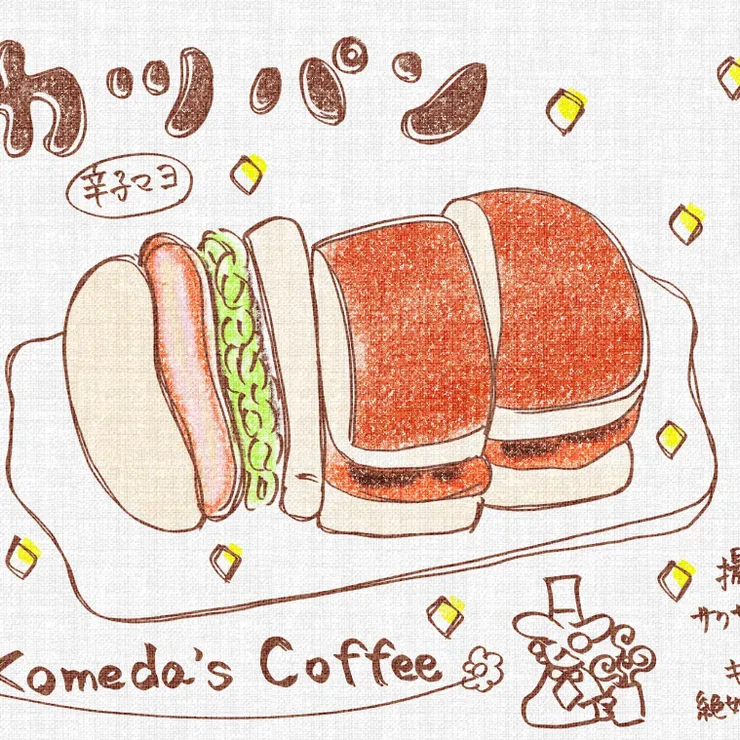 カツパン
辛子マヨ
Komeda's Coffee
サク